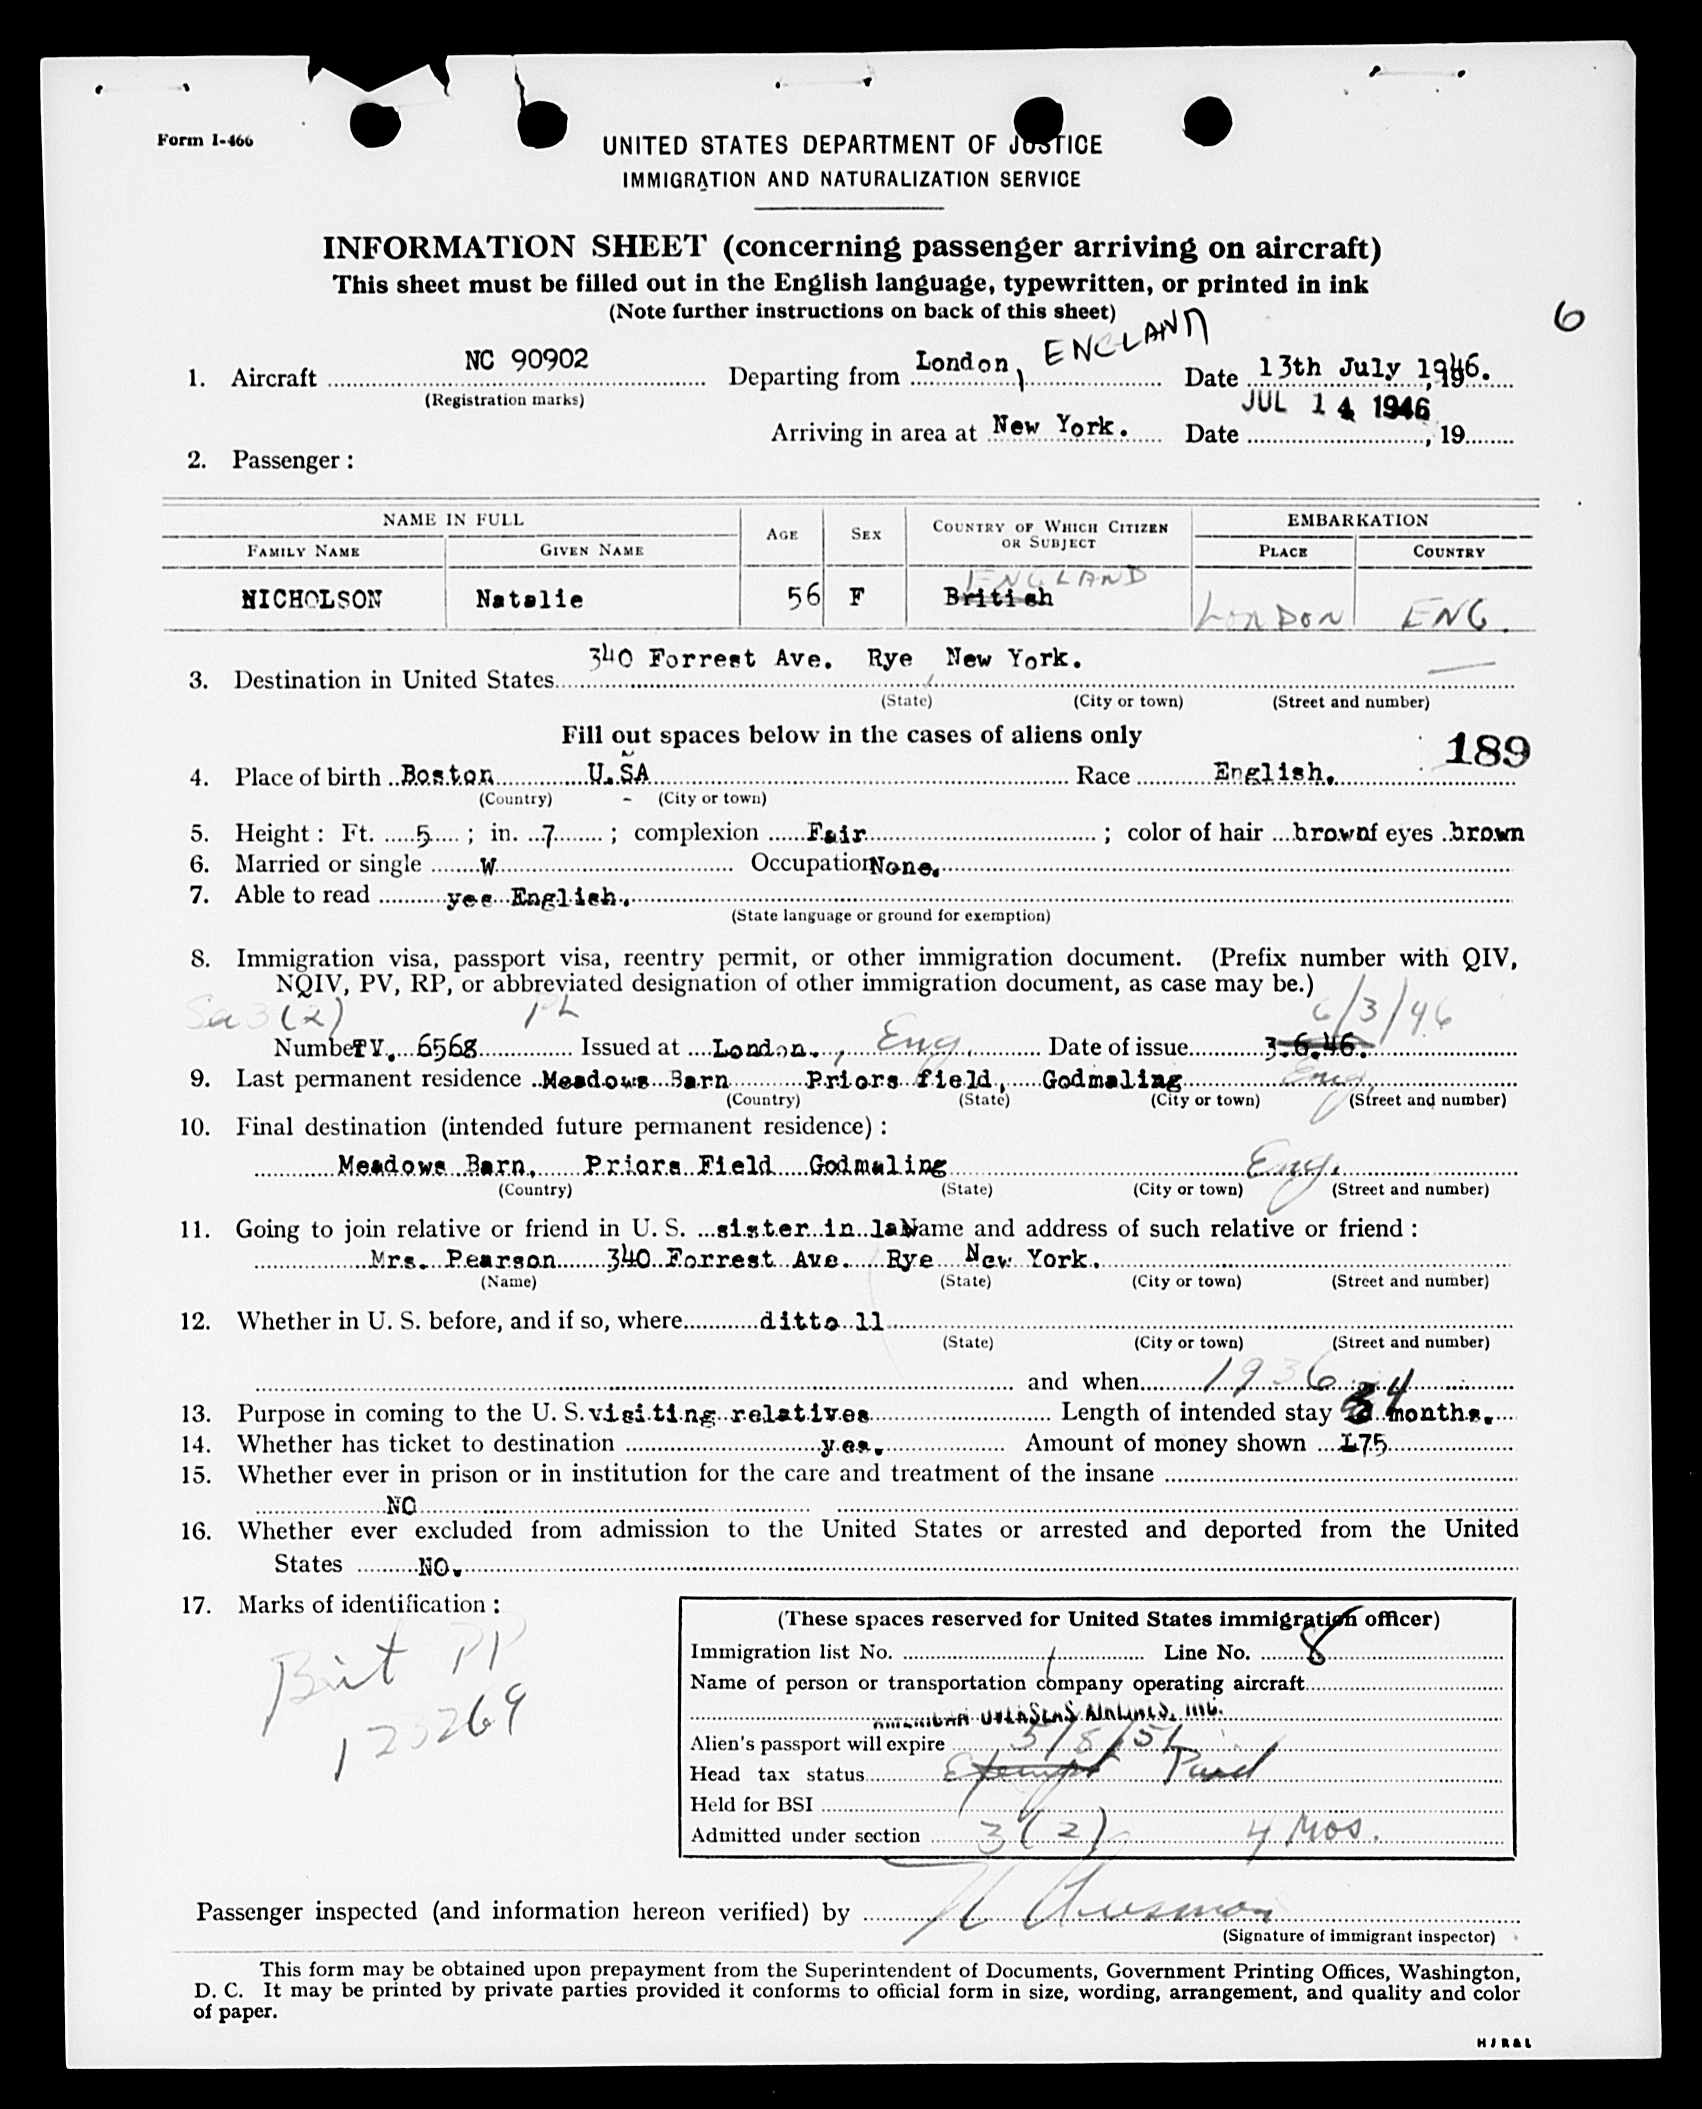 Form I-466
UNITED STATES DEPARTMENT OF JUSTICE
IMMIGRATION AND NATURALIZATION SERVICE
INFORMATION SHEET (concerning passenger arriving on aircraft)
This sheet must be filled out in the English language, typewritten, or printed in ink
(Note further instructions on back of this sheet)
6
1. Aircraft NC 90902 Departing from London, ENGLAND Date 13th July 1946.
(Registration marks)
JUL 14 1946
Arriving in area at New York. Date , 19
2. Passenger :
NAME IN FULL AGE SEX COUNTRY OF WHICH CITIZEN OR SUBJECT EMBARKATION
FAMILY NAME GIVEN NAME PLACE COUNTRY
ENGLAND
NICHOLSON Natalie 56 F British LONDON ENG.
340 Forrest Ave. Rye New York.
3. Destination in United States
(State) (City or town) (Street and number)
Fill out spaces below in the cases of aliens only
189
4. Place of birth Boston U.SA Race English.
(Country) (City or town)
5. Height : Ft. 5 ; in. 7 ; complexion Fair ; color of hair brown of eyes brown
6. Married or single W Occupation None.
7. Able to read yes English.
(State language or ground for exemption)
8. Immigration visa, passport visa, reentry permit, or other immigration document. (Prefix number with QIV,
NQIV, PV, RP, or abbreviated designation of other immigration document, as case may be.)
3(2) 6/3/46
Number 6568 Issued at London, Eng. Date of issue 3.6.46.
9. Last permanent residence Meadows Barn Priors field, Godmaling Eng.
(Country) (State) (City or town) (Street and number)
10. Final destination (intended future permanent residence) :
Meadows Barn, Priors Field Godmaling Eng.
(Country) (State) (City or town) (Street and number)
11. Going to join relative or friend in U. S. sister in law Name and address of such relative or friend :
Mrs. Pearson 340 Forrest Ave. Rye New York.
(Name) (State) (City or town) (Street and number)
12. Whether in U. S. before, and if so, where ditto 11
(State) (City or town) (Street and number)
and when 1936
13. Purpose in coming to the U. S. visiting relatives Length of intended stay 4 months.
14. Whether has ticket to destination yes. Amount of money shown £75
15. Whether ever in prison or in institution for the care and treatment of the insane
NO
16. Whether ever excluded from admission to the United States or arrested and deported from the United
States NO.
17. Marks of identification :
Brit PP
(These spaces reserved for United States immigration officer)
Immigration list No. 1 Line No. 8
Name of person or transportation company operating aircraft
AMERICAN OVERSEAS AIRLINES, INC.
Alien's passport will expire 5/8/51
Head tax status Exempt Paid
Held for BSI
Admitted under section 3(2) 4 Mos.
Passenger inspected (and information hereon verified) by
(Signature of immigrant inspector)
This form may be obtained upon prepayment from the Superintendent of Documents, Government Printing Offices, Washington,
D. C. It may be printed by private parties provided it conforms to official form in size, wording, arrangement, and quality and color
of paper.